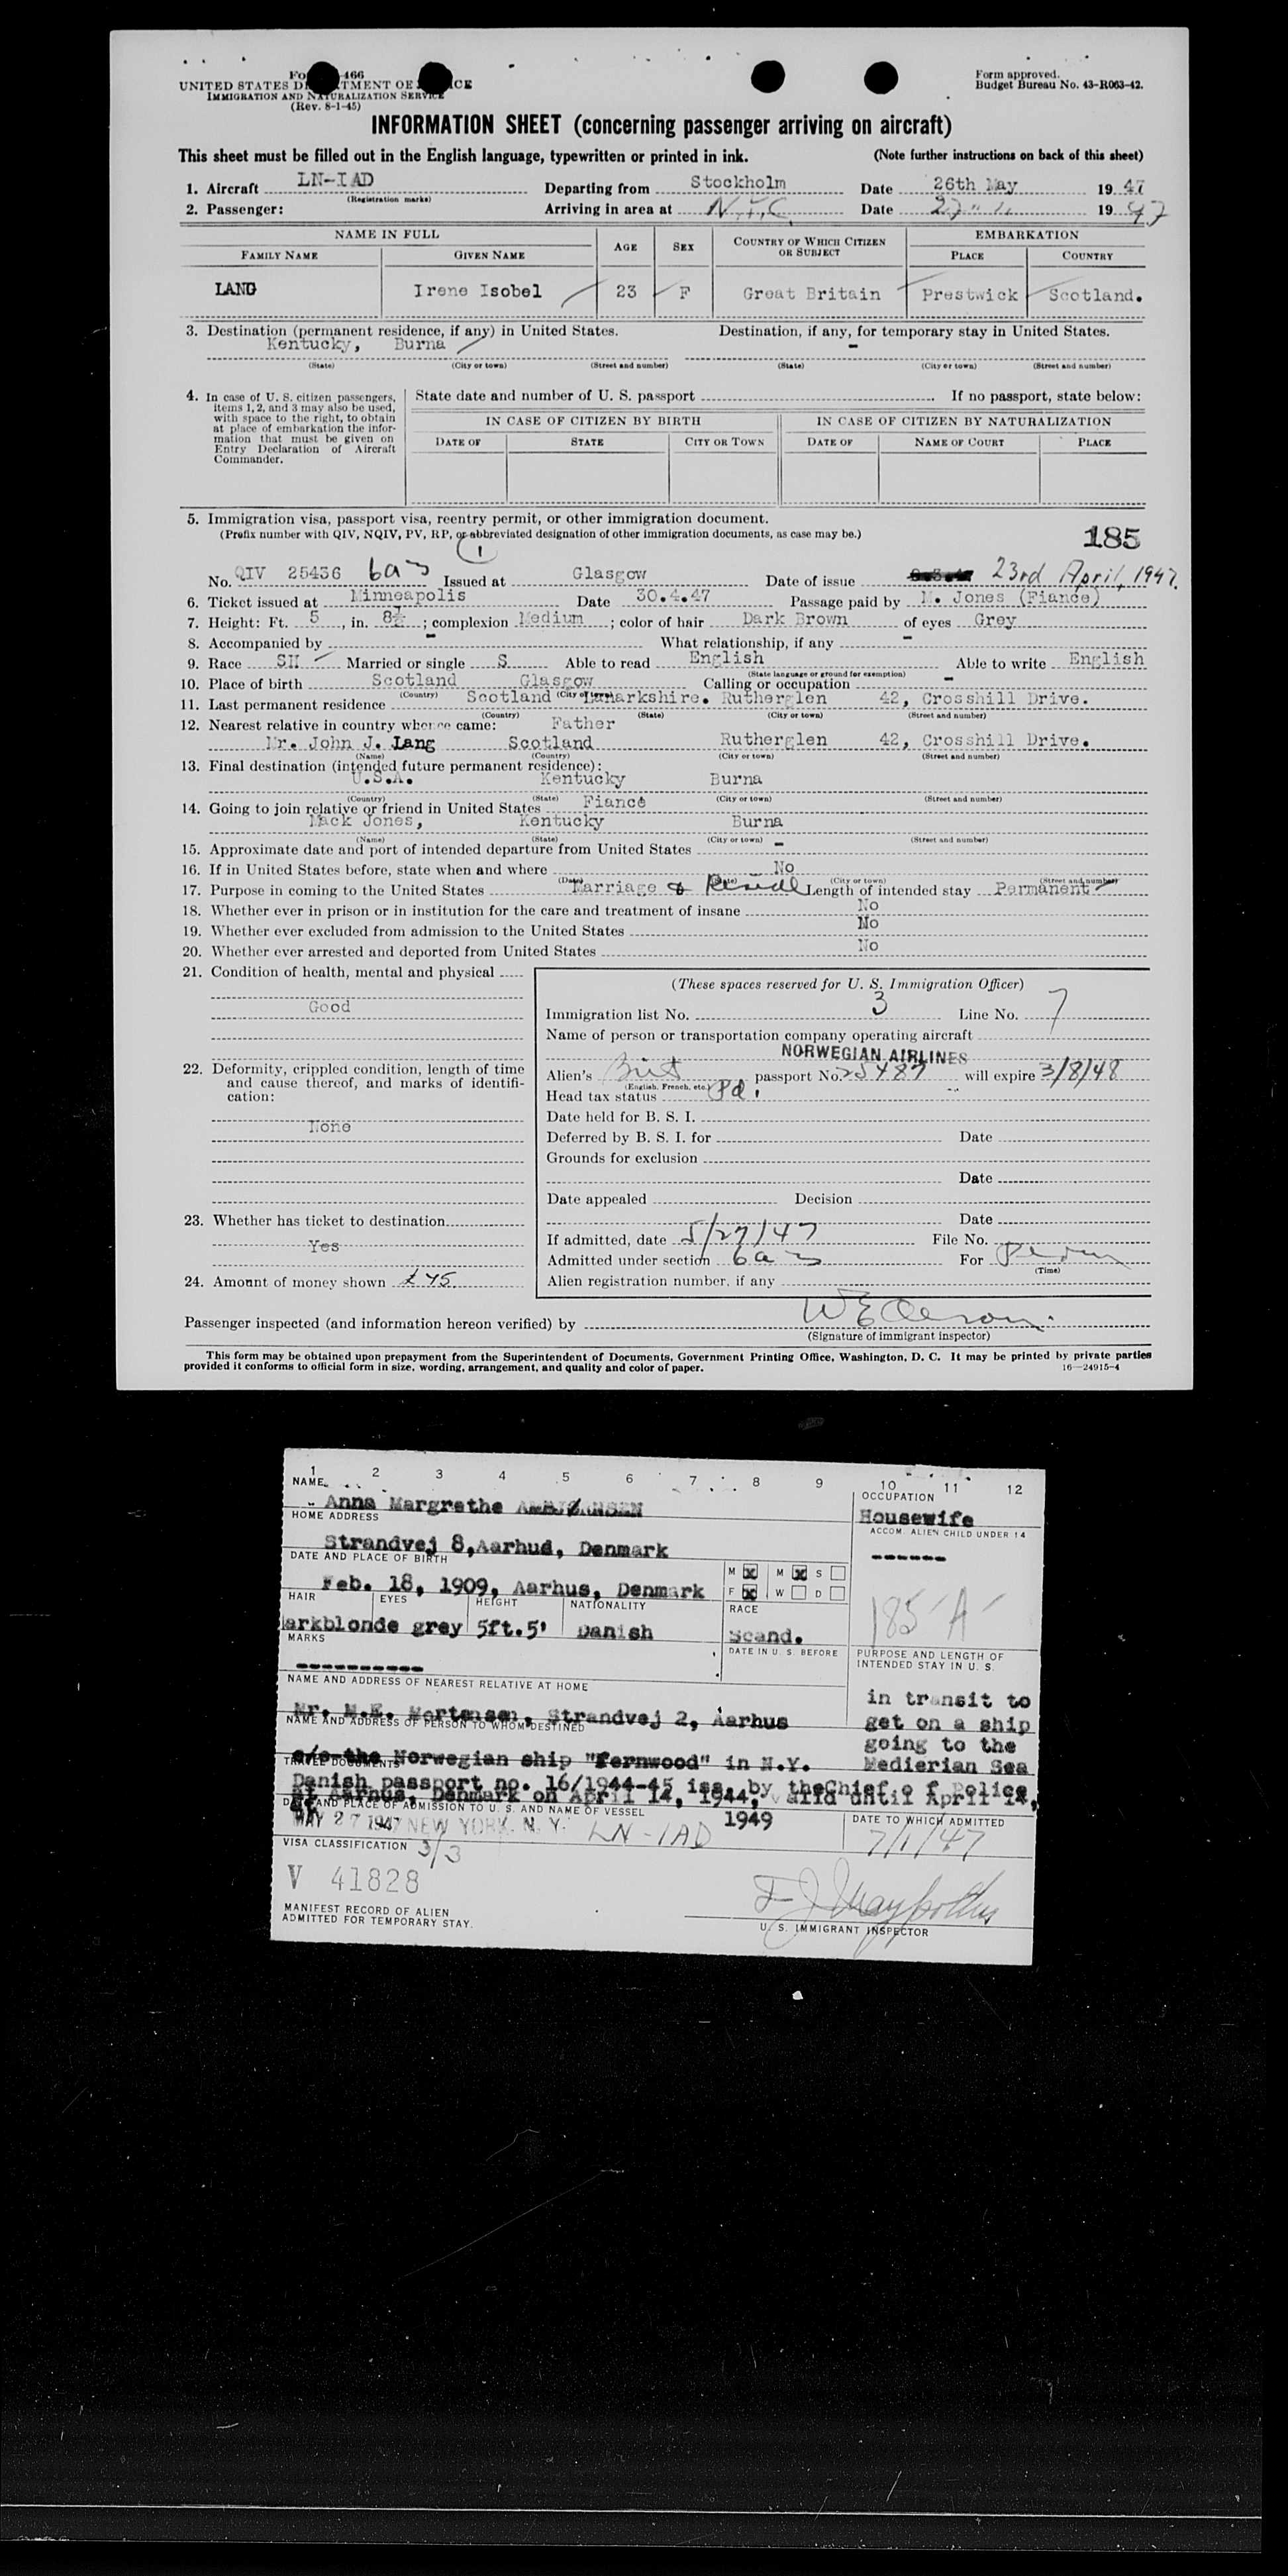 Form approved.
Budget Bureau No. 43-R063-42.
UNITED STATES DEPARTMENT OF JUSTICE
IMMIGRATION AND NATURALIZATION SERVICE
(Rev. 8-1-45)
INFORMATION SHEET (concerning passenger arriving on aircraft)
This sheet must be filled out in the English language, typewritten or printed in ink. (Note further instructions on back of this sheet)
1. Aircraft LN-IAD Departing from Stockholm Date 26th May 1947
(Registration marks)
2. Passenger: Arriving in area at N.Y.C. Date 27 " " 1947
NAME IN FULL AGE SEX COUNTRY OF WHICH CITIZEN OR SUBJECT EMBARKATION
FAMILY NAME GIVEN NAME PLACE COUNTRY
LANG Irene Isobel 23 F Great Britain Prestwick Scotland.
3. Destination (permanent residence, if any) in United States. Destination, if any, for temporary stay in United States.
Kentucky, Burna -
(State) (City or town) (Street and number) (State) (City or town) (Street and number)
4. In case of U. S. citizen passengers, items 1, 2, and 3 may also be used, with space to the right, to obtain at place of embarkation the information that must be given on Entry Declaration of Aircraft Commander.
State date and number of U. S. passport If no passport, state below:
IN CASE OF CITIZEN BY BIRTH IN CASE OF CITIZEN BY NATURALIZATION
DATE OF STATE CITY OR TOWN DATE OF NAME OF COURT PLACE
5. Immigration visa, passport visa, reentry permit, or other immigration document.
(Prefix number with QIV, NQIV, PV, RP, or abbreviated designation of other immigration documents, as case may be.) 185
No. QIV 25436 6a3 Issued at Glasgow Date of issue 23rd April, 1947.
6. Ticket issued at Minneapolis Date 30.4.47 Passage paid by M. Jones (Fiance)
7. Height: Ft. 5, in. 8½; complexion Medium; color of hair Dark Brown of eyes Grey
8. Accompanied by - What relationship, if any -
9. Race SH Married or single S Able to read English Able to write English
(State language or ground for exemption)
10. Place of birth Scotland Glasgow Calling or occupation -
(Country) (City or town)
11. Last permanent residence Scotland Lanarkshire. Rutherglen 42, Crosshill Drive.
(Country) (State) (City or town) (Street and number)
12. Nearest relative in country whence came: Father
Mr. John J. Lang Scotland Rutherglen 42, Crosshill Drive.
(Name) (Country) (City or town) (Street and number)
13. Final destination (intended future permanent residence):
U.S.A. Kentucky Burna
(Country) (State) (City or town) (Street and number)
14. Going to join relative or friend in United States Fiancé
Mack Jones, Kentucky Burna
(Name) (State) (City or town) (Street and number)
15. Approximate date and port of intended departure from United States -
16. If in United States before, state when and where No
(Date) (State) (City or town) (Street and number)
17. Purpose in coming to the United States Marriage & Reside Length of intended stay Permanent
18. Whether ever in prison or in institution for the care and treatment of insane No
19. Whether ever excluded from admission to the United States No
20. Whether ever arrested and deported from United States No
21. Condition of health, mental and physical
Good
22. Deformity, crippled condition, length of time and cause thereof, and marks of identification:
None
23. Whether has ticket to destination
Yes
24. Amount of money shown £45
(These spaces reserved for U. S. Immigration Officer)
Immigration list No. 3 Line No. 7
Name of person or transportation company operating aircraft
NORWEGIAN AIRLINES
Alien's Brit passport No. 25487 will expire 3/8/48
(English, French, etc.)
Head tax status Pd.
Date held for B. S. I.
Deferred by B. S. I. for Date
Grounds for exclusion
Date
Date appealed Decision
Date
If admitted, date 5/27/47 File No.
Admitted under section 6a3 For Perm
(Time)
Alien registration number, if any
Passenger inspected (and information hereon verified) by
(Signature of immigrant inspector)
This form may be obtained upon prepayment from the Superintendent of Documents, Government Printing Office, Washington, D. C. It may be printed by private parties
provided it conforms to official form in size, wording, arrangement, and quality and color of paper. 16—24915-4
1 2 3 4 5 6 7 8 9 10 11 12
NAME OCCUPATION
Anna Margrethe Housewife
HOME ADDRESS ACCOM. ALIEN CHILD UNDER 14
Strandvej 8, Aarhud, Denmark ------
DATE AND PLACE OF BIRTH M X M X S
Feb. 18, 1909, Aarhus, Denmark F X W D
HAIR EYES HEIGHT NATIONALITY RACE 185-A
arkblonde grey 5ft.5' Danish Scand.
MARKS DATE IN U. S. BEFORE PURPOSE AND LENGTH OF INTENDED STAY IN U. S.
----------
NAME AND ADDRESS OF NEAREST RELATIVE AT HOME in transit to
Mr. M.E. Mortensen, Strandvej 2, Aarhus get on a ship
NAME AND ADDRESS OF PERSON TO WHOM DESTINED going to the
c/o the Norwegian ship "Fernwood" in N.Y. Medierian Sea
TRAVEL DOCUMENTS
Danish passport no. 16/1944-45 iss. by theChief o f Police
at Aarhus, Denmark on April 12, 1944, valid until April 12,
DATE AND PLACE OF ADMISSION TO U. S. AND NAME OF VESSEL 1949 DATE TO WHICH ADMITTED
MAY 27 1947 NEW YORK. N. Y. LN-IAD 7/1/47
VISA CLASSIFICATION 3/3
V 41828
MANIFEST RECORD OF ALIEN
ADMITTED FOR TEMPORARY STAY.
U. S. IMMIGRANT INSPECTOR